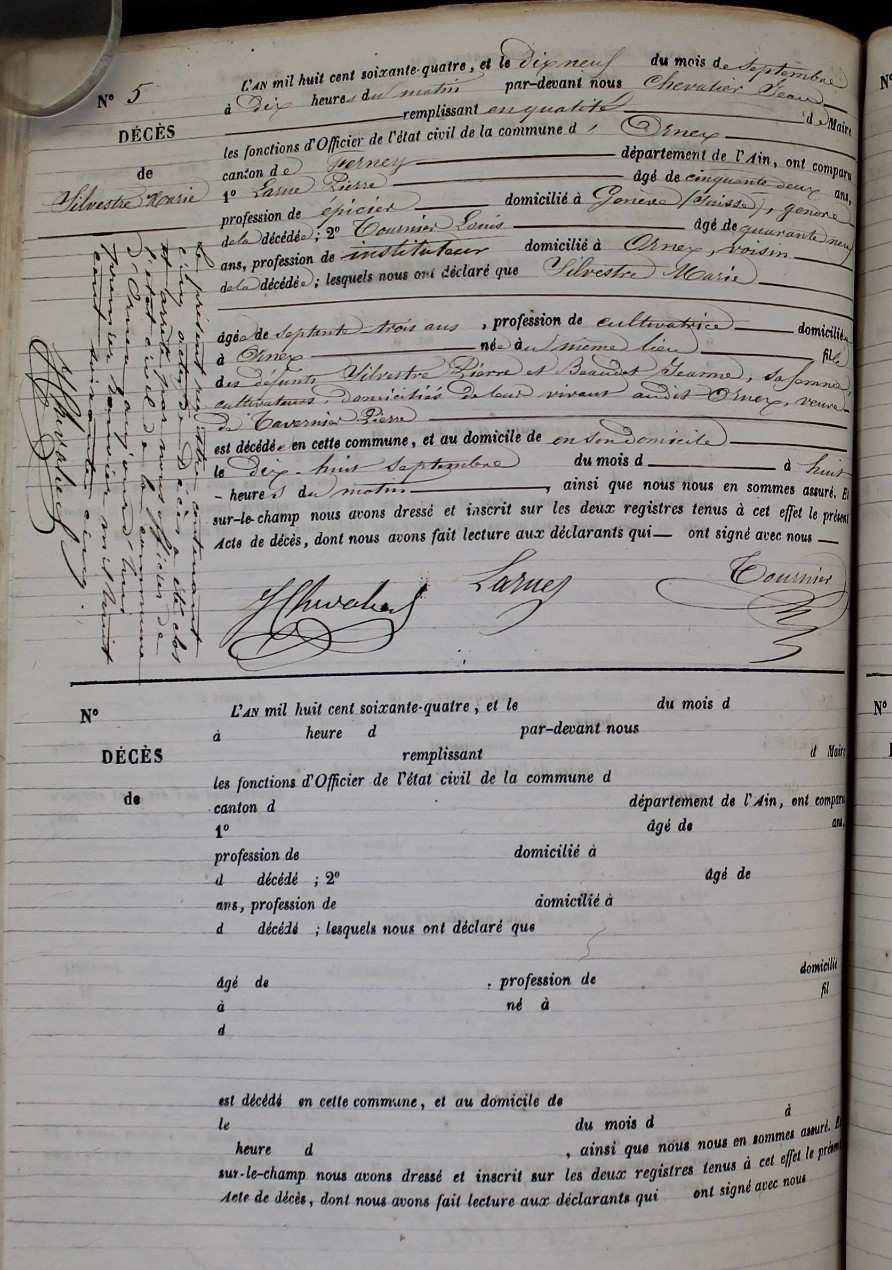 N° 5
DÉCÈS
de
Silvestre Marie
L'AN mil huit cent soixante-quatre, et le dix neuf du mois de septembre
à dix heures du matin par-devant nous Chevalier Jean
remplissant en qualité de Maire
les fonctions d'Officier de l'état civil de la commune d' Ornex
canton de Ferney département de l'Ain, ont comparu
1° Larue Pierre âgé de cinquante deux ans,
profession de épicier domicilié à Genève (Suisse), gendre
de la décédée ; 2° Tournier Louis âgé de quarante neuf
ans, profession de instituteur domicilié à Ornex, voisin
de la décédée ; lesquels nous ont déclaré que Silvestre Marie
âgée de septante trois ans , profession de cultivatrice domiciliée
à Ornex née au même lieu fille
des défunts Silvestre Pierre et Beaudet Jeanne, sa femme,
cultivateurs, domiciliés de leur vivant audit Ornex, veuve
de Tavernier Pierre
est décédée en cette commune, et au domicile de en son domicile
le dix-huit septembre du mois d à huit
heures du matin , ainsi que nous nous en sommes assuré. Et
sur-le-champ nous avons dressé et inscrit sur les deux registres tenus à cet effet le présent
Acte de décès, dont nous avons fait lecture aux déclarants qui ont signé avec nous
JChevalier Larue Tournier
Le présent registre contenant
cinq actes de Décès a été clos
et arrêté par nous officier de
l'état civil de la commune
d'Ornex aujourd'hui
premier janvier mil huit
cent soixante cinq.
JChevalier
N°
DÉCÈS
de
L'AN mil huit cent soixante-quatre, et le du mois d
à heure d par-devant nous
remplissant d Maire
les fonctions d'Officier de l'état civil de la commune d
canton d département de l'Ain, ont comparu
1° âgé de ans,
profession de domicilié à
d décédé ; 2° âgé de
ans, profession de domicilié à
d décédé ; lesquels nous ont déclaré que
âgé de , profession de domicilié
à né à fil
d
est décédé en cette commune, et au domicile de
le du mois d à
heure d , ainsi que nous nous en sommes assuré. Et
sur-le-champ nous avons dressé et inscrit sur les deux registres tenus à cet effet le présent
Acte de décès, dont nous avons fait lecture aux déclarants qui ont signé avec nous
N°
N°